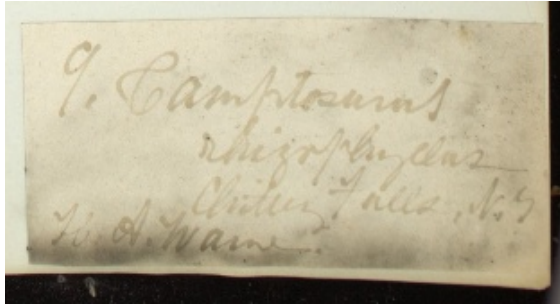 9. Camptosurus
rhizophyllus
Falls, N.Y
H. A. Warne.